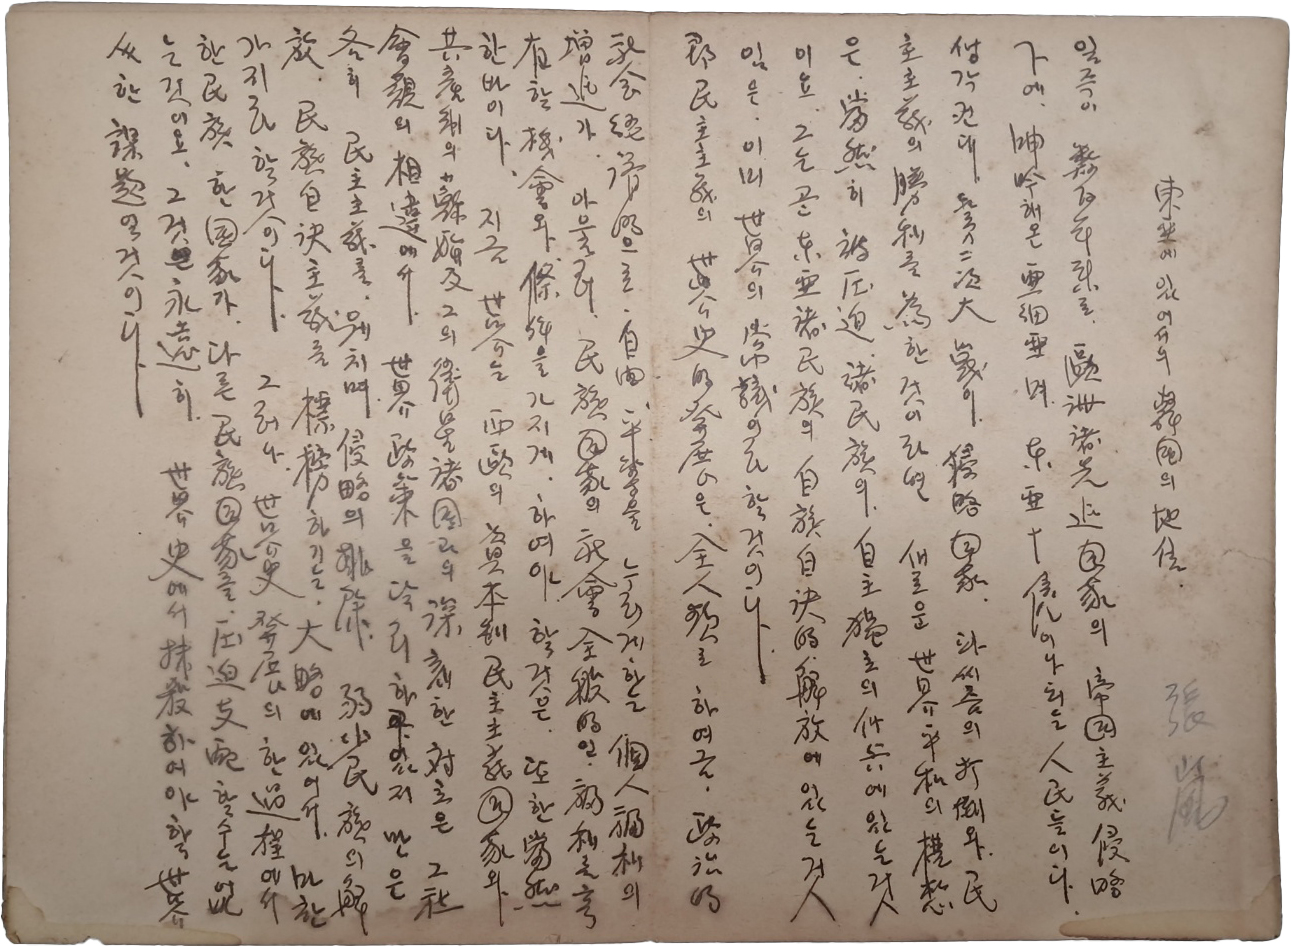 東亞에 있어서의 韓国의 地位.
張嵐
일즉이 數百年來로. 歐洲諸先進国家의 帝国主義侵略
下에. 呻吟해온 亞細亞며. 东亞十億이나 되는 人民들이다.
생각컨대 第二次大戰이. 侵略国家. 파씨즘의 打倒와. 民
主主義의 勝利를 爲한 것이라면 새로운 世界平和의 構想
은. 當然히 被压迫. 諸民族의. 自主獨立의 에 있는 것
이요. 그는 곧 东亞諸民族의 自族自决的. 解放에 있는 것
임은. 이미 世界의 常識이라 할것이다.
民主主義의 世界史的發展은. 全人類로 하여금. 政治的
社会経濟的으로. 自由 平等을 누리게하는 個人福利의
增進가. 아울러. 民族国家의 社會全般的인. 福利를 享
有할 機會와. 條件을 가지게. 하여야. 할것은. 또한 當然
한바이다. 지금 世界는 西歐의 資本制民主主義国家와.
共産制의 蘇聯及 그의 衛星諸国과의 深刻한 対立은 그社
會觀의 相違에서. 世界政策을 달리하고있지만은
各히 民主主義를. 웨치며. 侵略의 排除. 弱小民族의 解
放. 民族自决主義를 標榜하기는. 大略에 있어서. 마찬
가지라 할것이다. 그러나. 世界史發展의 한過程에서
한民族 한国家가. 다른 民族国家를. 压迫支配할수는 없
는것이요. 그것은 永遠히. 世界史에서 抹殺하여야할 世界
써한 課題일것이다.